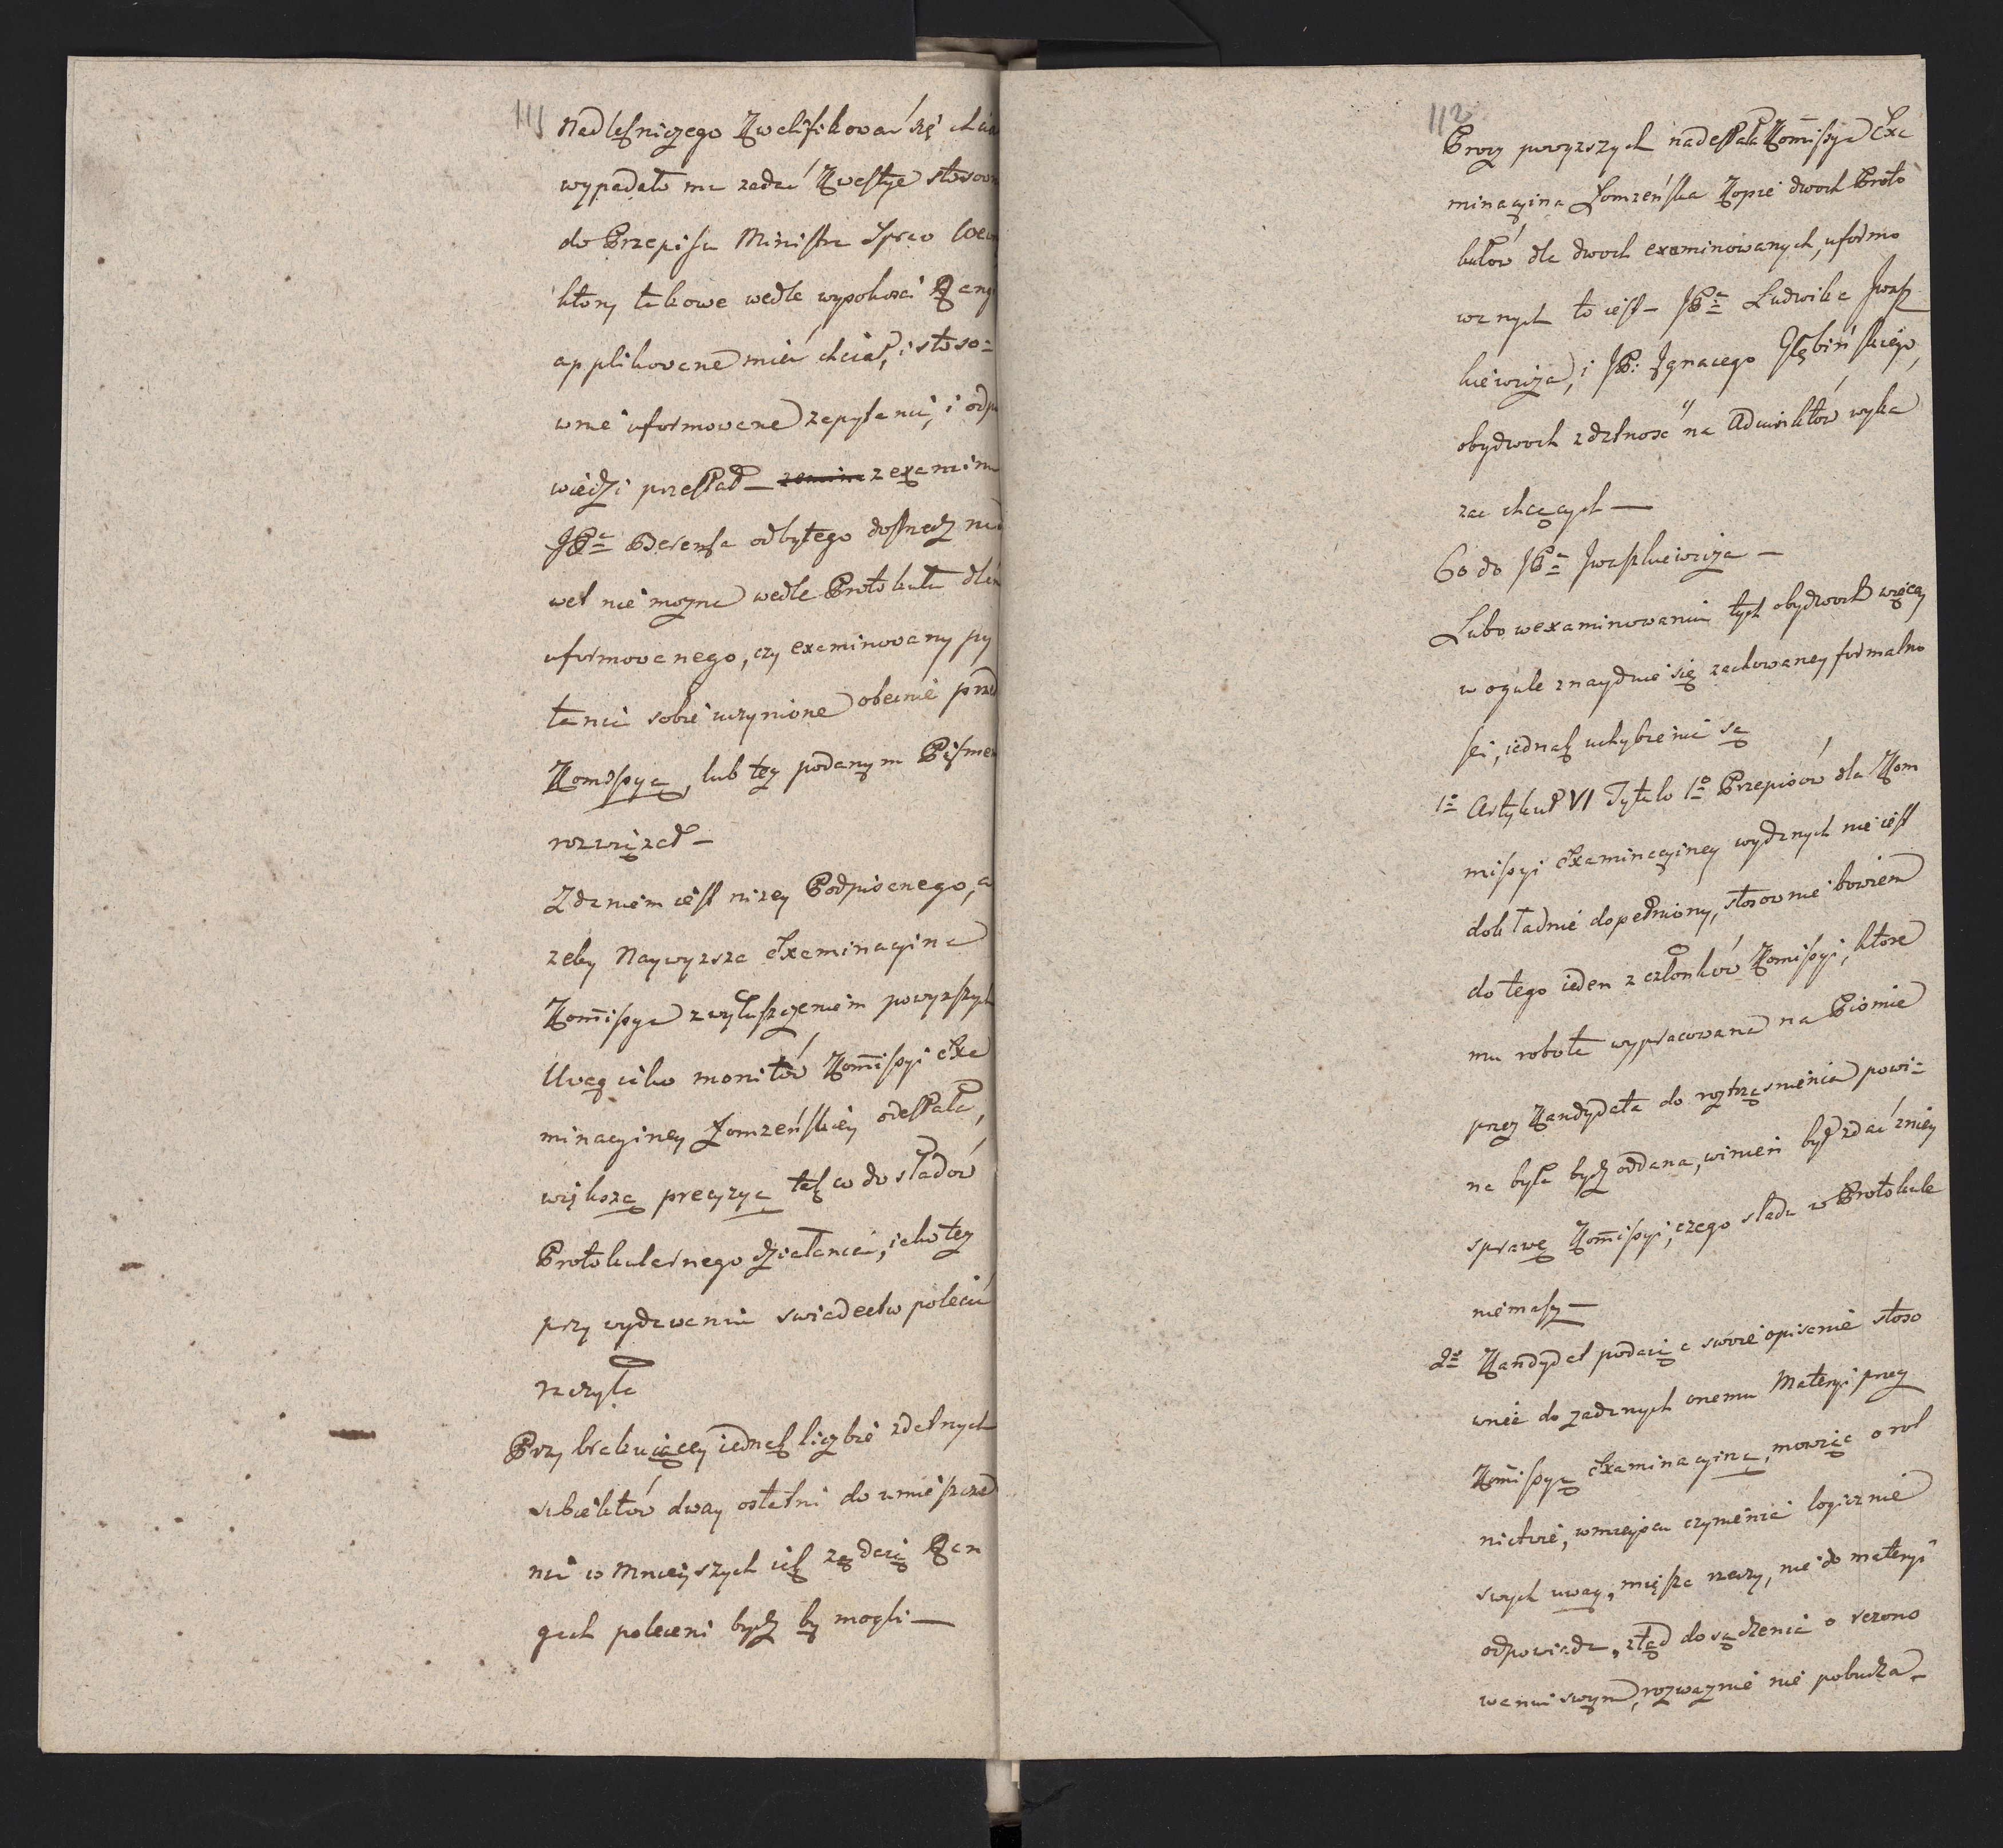 111
Nadleśniczego Kwalifikować się chcia
wypadało mu zadać Kwestye stosown
do Przepisu Ministra Spraw Wewn
ktory takowe wedle wysokości Rang
applikowane mieć chciał, i stoso=
wnie uformowane zapytania, i odpo
wiedzi przesłał — z examinu
JPa Berensa odbytego dostrzedz na
wet nie można wedle Protokułu dlań
uformowanego, czy examinowany py
tania sobie uczynione obecnie przed
Kommissyą, lub też podanym Pismem
rozwiązał —
Zdaniem iest niżey Podpisanego, a
żeby Naywyższa Examinacyina
Kom̄issya z wyłuszczeniem powyższych
Uwag iako monitów Kom̄issyi Exa
minacyiney Łomżeńskiey odesłała,
większą precyzyą tak co do śladów
Protokularnego działania, iako też
przy wydawaniu świadectw polecić
raczyła
Przy brakuiącey iednak liczbie zdatnych
subiektów dway ostatni do umieszcze
nia w Mnieyszych iak żądaią Ran
gach poleceni bydź by mogli —
112
Procz powyzszych nadesłała Kom̄issya Exa
minacyina Łomżeńska Kopie dwoch Proto
kułów dla dwoch examinowanych, uformo
wanych to iest — JPa Ludwika Iwasz
kiewicza, i JP: Ignacego Głębińskiego,
obydwoch zdatność na Adiunktów wyka
zać chcących —
Co do JPa Iwaszkiewicza —
Lubo w examinowaniu tych obydwoch więcey
w ogule znayduie się zachowaney formalno
ści, iednak uchybienia są
1o Artykuł VI Tytułu 1o Przepisów dla Kom
missyi Examinacyiney wydanych nie iest
dokładnie dopełniony, stosownie bowiem
do tego ieden z członków Komissyi, które
mu robota wypracowana na Piśmie
przez Kandydata do roztrząśnienia powi=
na była bydź oddana, winien był zdać z niey
sprawę Kom̄issyi, czego śladu w Protokule
niemasz —
2o Kandydat podaiąc swoie opisanie stoso
wnie do zadanych onemu Materyi przez
Kom̄issyą Examinacyiną, mowiąc o rol
nictwie, w mieyscu czynienia logicznie
swych uwag, miesza rzeczy, nie do materyi
odpowiada, ztąd do sądzenia o rezono
waniu swym, rozważnie nie pobudza —